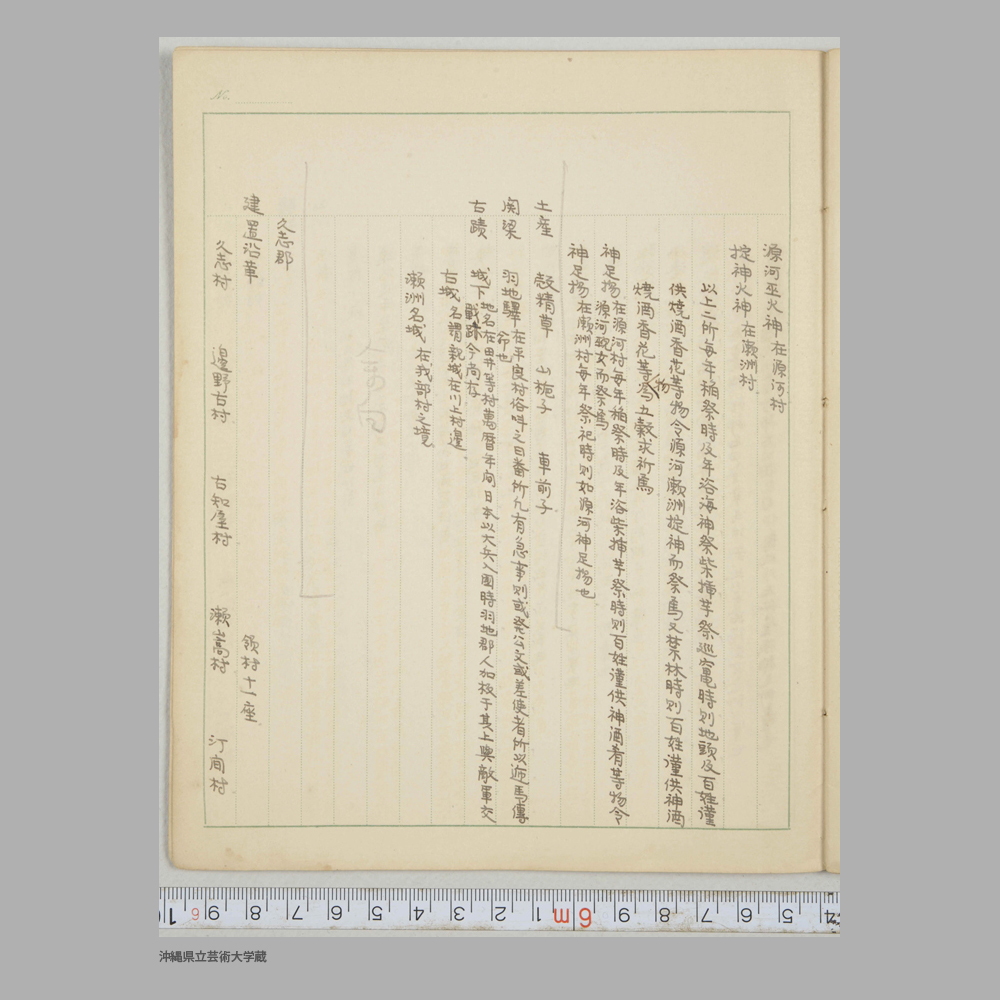 源河巫火神 在源河村
掟神火神 在瀬洲村
以上二所毎年稲祭時及年浴海神祭柴揷芋祭巡竃時則地頭及百姓謹
供焼酒香花等物令源河瀬洲掟神而祭焉又禁林時則百姓謹供神酒
焼酒香花等物為五穀求祈焉
神足揚 在源河村毎年稲祭時及年浴柴揷芋祭時則百姓謹供神酒肴等物令
源河砠女而祭焉
神足揚 在瀬洲村毎年祭祀時則如源河神足揚也
土産 穀精草 山梔子 車前子
関梁 羽地驛 在平良村俗呌之曰番所凡有急事則或発公文或差使者所以逓馬傳
命也
古蹟 城下 地名在田井等村萬暦年間日本以大兵入國時羽地郡人加板于其上與敵軍交
戦跡今尚存
古城 名謂親城在川上村邊
瀬洲名城 在我部村之境
久志郡
建置沿革 領村十一座
久志村 邊野古村 古知屋村 瀬嵩村 汀間村
No.
沖縄県立芸術大学蔵